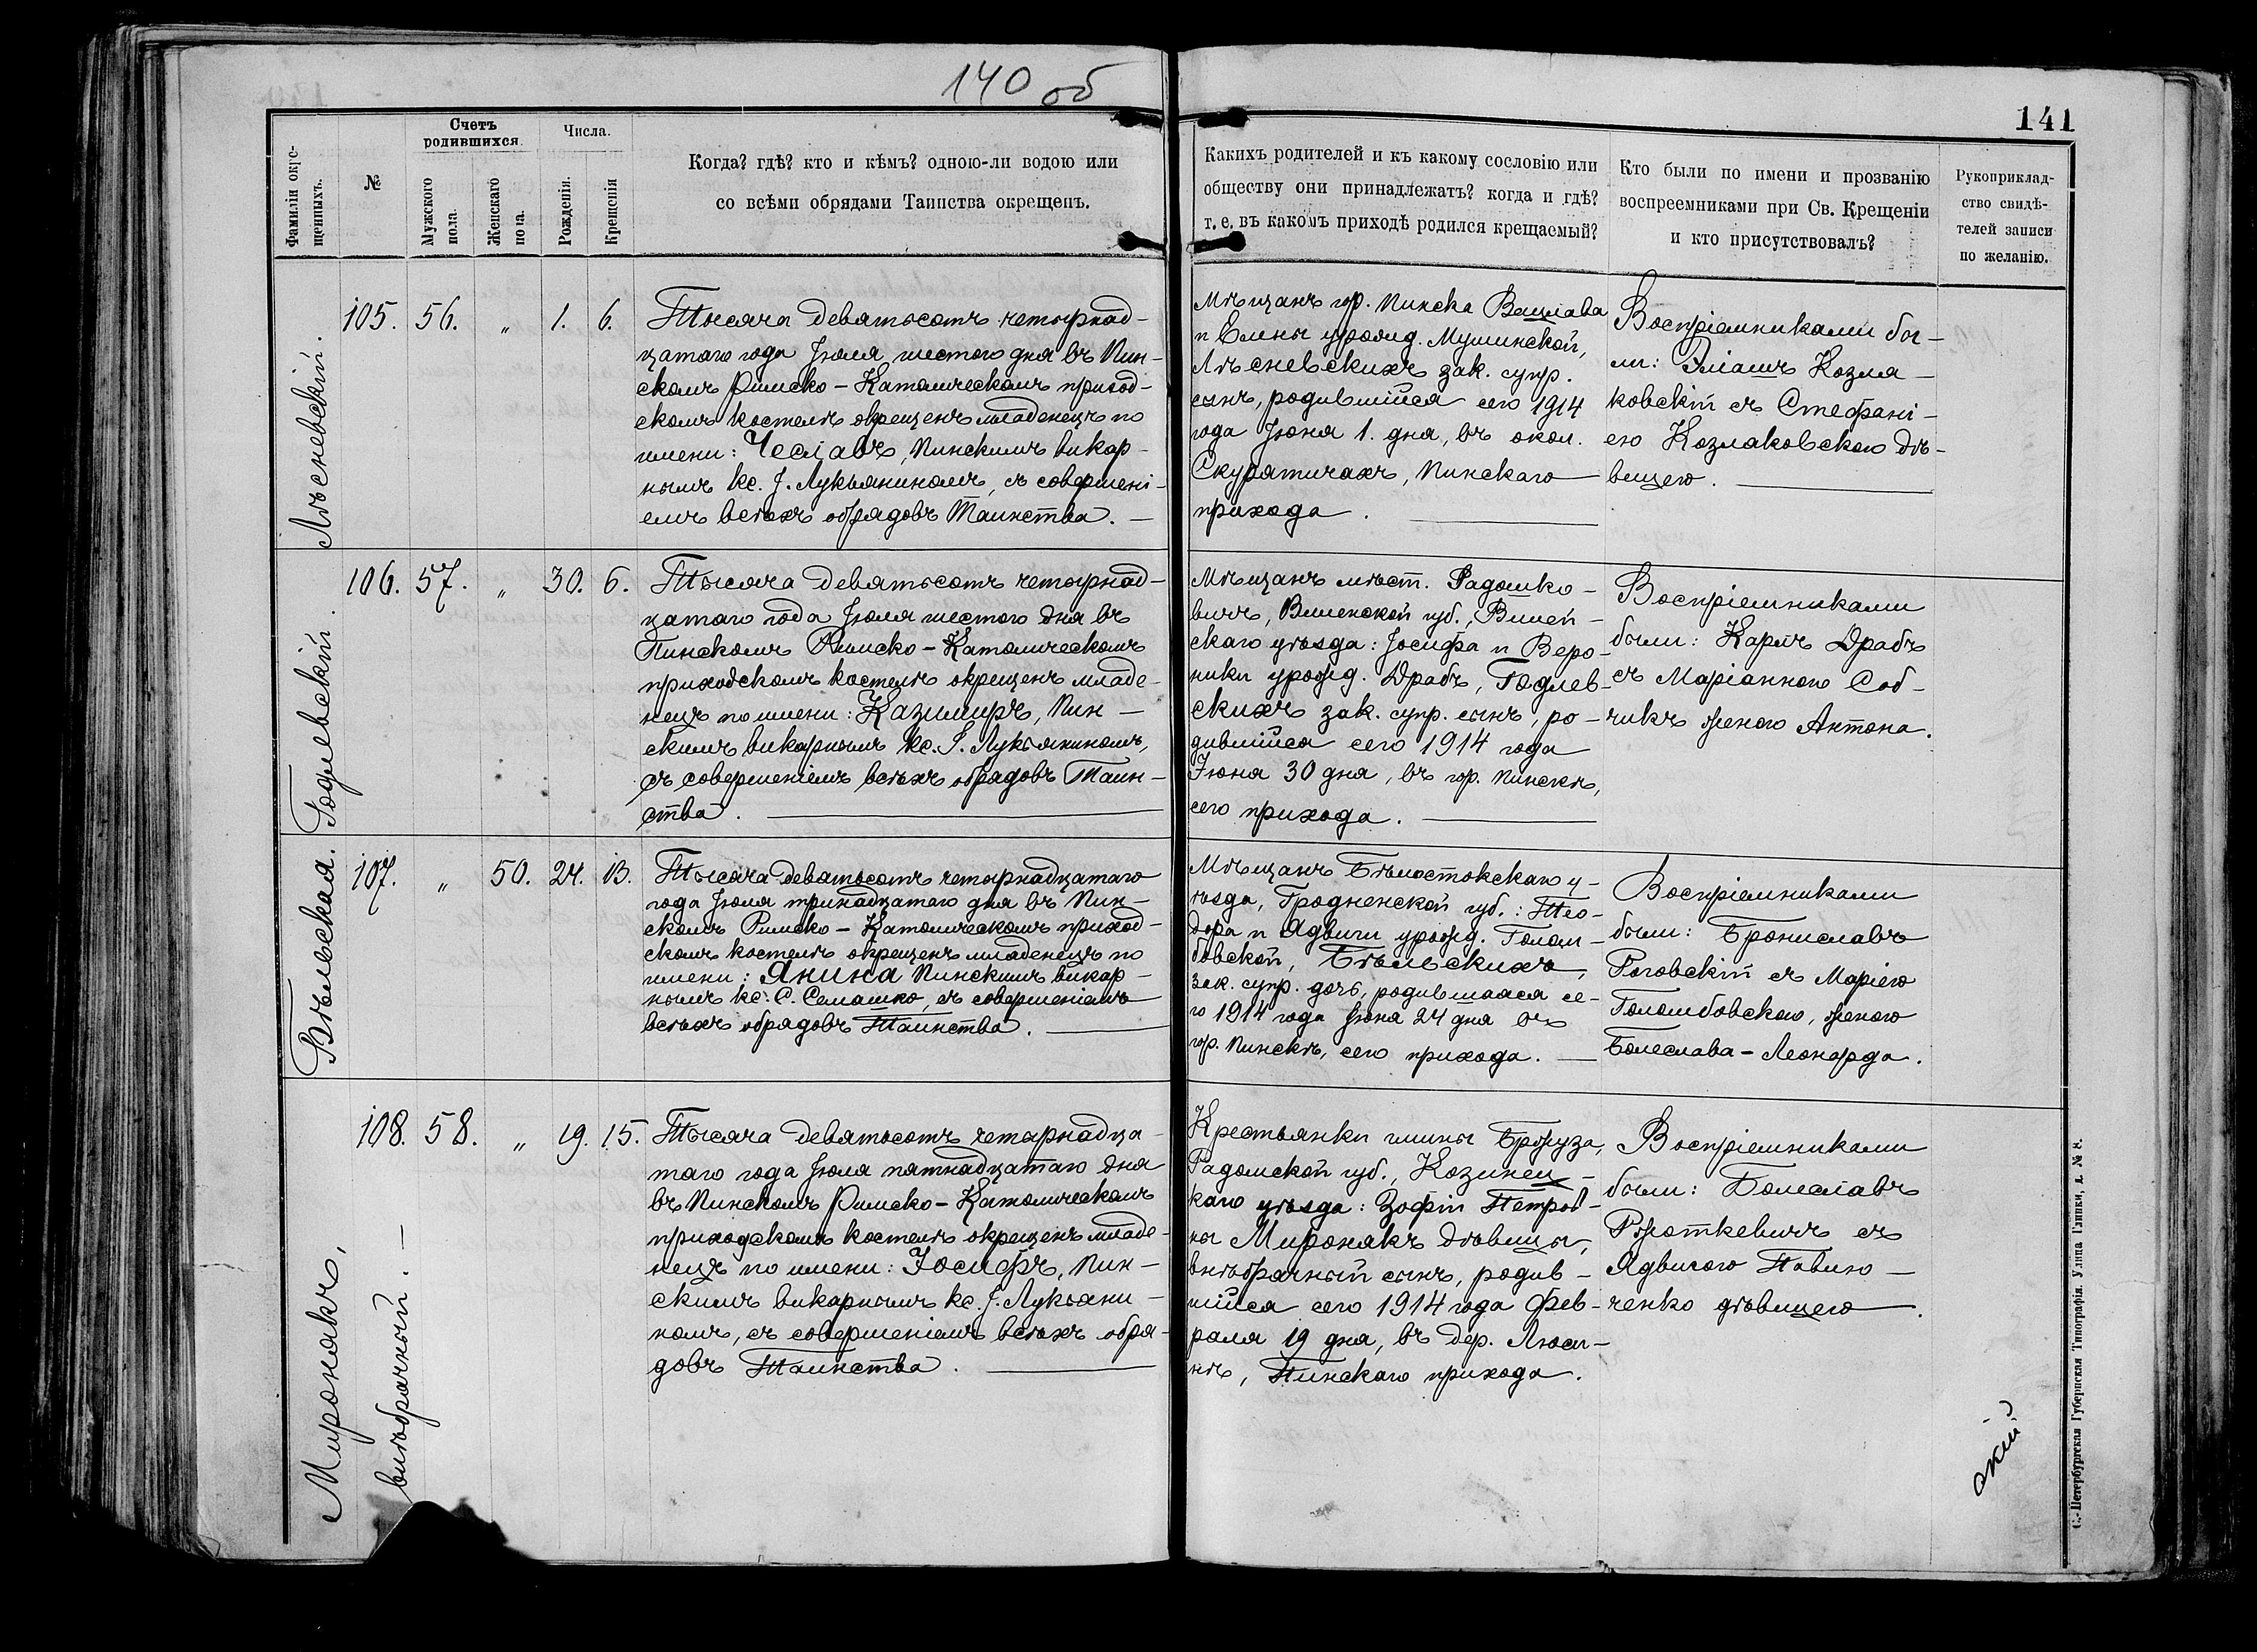 140 об
141
Фамиліи окре-
щенныхъ.
№
Счетъ
родившихся.
Мужского
пола.
Женскаго
пола.
Числа.
Рожденія.
Крещенія
Когда? гдѣ? кто и кѣмъ? одною-ли водою или
со всѣми обрядами Таинства окрещенъ.
Какихъ родителей и къ какому сословію или
обществу они принадлежатъ? когда и гдѣ?
т. е. въ какомъ приходѣ родился крещаемый?
Кто были по имени и прозванію
воспреемниками при Св. Крещеніи
и кто присутствовалъ?
Рукоприклад-
ство свидѣ-
телей записи
по желанію.
Лѣсневскій.
105. 56. „ 1. 6.
Тысяча девятьсотъ четырнад-
цатаго года Іюля шестого дня въ Пин-
скомъ Римско-Католическомъ приход-
скомъ костелѣ окрещенъ младенецъ по
имени: Чеславъ, Пинскимъ викар-
нымъ кс. J. Лукьяниномъ, съ совершені-
емъ всѣхъ обрядовъ Таинства. —
Мѣщанъ гор. Пинска Вацлава
и Елены урожд. Мушинской,
Лѣсневскихъ зак. супр.
сынъ, родившійся сего 1914
года Іюня 1. дня, въ окол.
Скурятичахъ, Пинскаго
прихода.
Воспріемниками бы-
ли: Эліашъ Козля-
ковскій съ Стефані-
ею Козляковскою дѣ-
вицею.
Годлевскій.
106. 57. „ 30. 6.
Тысяча девятьсотъ четырнад-
цатаго года Іюля шестого дня въ
Пинскомъ Римско-Католическомъ
приходскомъ костелѣ окрещенъ младе-
нецъ по имени: Казимиръ, Пин-
скимъ викарнымъ кс. J. Лукьяниномъ,
съ совершеніемъ всѣхъ обрядовъ Таин-
ства.
Мѣщанъ мѣст. Радошко-
вичъ, Виленской губ., Вилен-
скаго уѣзда: Іосифа и Веро-
ники урожд. Драбъ, Годлев-
скихъ зак. супр. сынъ, ро-
дившійся сего 1914 года
Іюня 30 дня, въ гор. Пинскѣ,
сего прихода.
Воспріемниками
были: Карлъ Драбъ
съ Маріанною Соб-
чикъ женою Антона.
Бѣльская.
107. „ 50. 24. 13.
Тысяча девятьсотъ четырнадцатаго
года Іюля тринадцатаго дня въ Пин-
скомъ Римско-Католическомъ приход-
скомъ костелѣ окрещенъ младенецъ по
имени: Янина Пинскимъ викар-
нымъ кс. С. Семашко, съ совершеніемъ
всѣхъ обрядовъ Таинства.
Мѣщанъ Бѣлостокскаго у-
ѣзда, Гродненской губ.: Тео-
дора и Ядвиги урожд. Голом-
бовской, Бѣльскихъ,
зак. супр. дочь, родившаяся се-
го 1914 года Іюня 24 дня въ
гор. Пинскѣ, сего прихода.
Воспріемниками
были: Брониславъ
Роговскій съ Маріею
Голомбовскою, женою
Болеслава-Леонарда.
Миронякъ,
внѣбрачный. —
108. 58. „ 19. 15.
Тысяча девятьсотъ четырнадца-
таго года Іюля пятнадцатаго дня
въ Пинскомъ Римско-Католическомъ
приходскомъ костелѣ окрещенъ младе-
нецъ по имени: Іосифъ, Пин-
скимъ викарнымъ кс. J. Лукьяни-
номъ, съ совершеніемъ всѣхъ обря-
довъ Таинства.
Крестьянки гмины Бржуза,
Радомской губ., Козинец-
каго уѣзда: Зофіи Петров-
ны Миронякъ дѣвицы,
внѣбрачный сынъ, родив-
шійся сего 1914 года Фев-
раля 19 дня, въ дер. Люси-
нѣ, Пинскаго прихода.
Воспріемниками
были: Болеславъ
съ
Ядвигою Павлю-
ченко дѣвицею.
скій
С.-Петербургская Губернская Типографія. Улица Глинки, д. № 8.